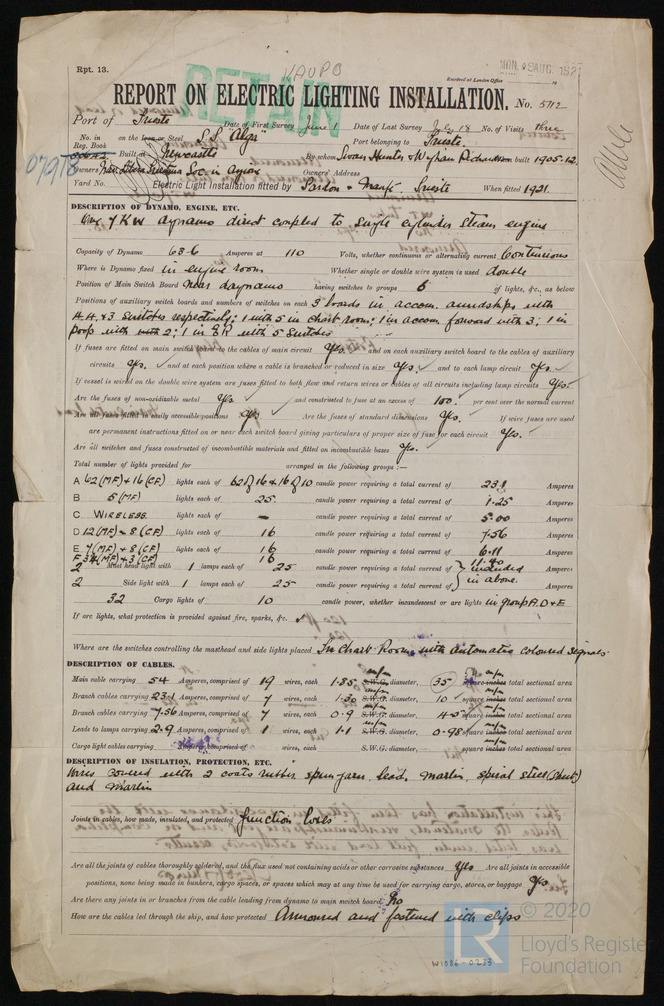 Rpt. 13.
VAUPO
RETAIN
MON. 8 AUG. 192
Received at London Office
REPORT ON ELECTRIC LIGHTING INSTALLATION. No. 5712
Port of Trieste Date of First Survey June 1 Date of Last Survey July 18 No. of Visits three
No. in Reg. Book on the Iron or Steel S.S. "Algä" Port belonging to Trieste
Built at Newcastle By whom Swan Hunter & Wigham Richardson built 1905-12
Owners Owners' Address
Yard No. Electric Light Installation fitted by Trieste When fitted 1921.
DESCRIPTION OF DYNAMO, ENGINE, ETC.
One 7 KW dynamo direct coupled to single cylinder steam engine
Capacity of Dynamo 63·6 Amperes at 110 Volts, whether continuous or alternating current Continuous
Where is Dynamo fixed in engine room Whether single or double wire system is used double
Position of Main Switch Board near dynamo having switches to groups 6 of lights, &c., as below
Positions of auxiliary switch boards and numbers of switches on each 3 boards in accom. amidships with
4.4.+3 switches respectively; 1 with 5 in chart room; 1 in accom forward with 3; 1 in
poop with 2; 1 in ER with 5 switches
If fuses are fitted on main switch board to the cables of main circuit Yes. and on each auxiliary switch board to the cables of auxiliary
circuits Yes. and at each position where a cable is branched or reduced in size Yes. and to each lamp circuit Yes.
If vessel is wired on the double wire system are fuses fitted to both flow and return wires or cables of all circuits including lamp circuits Yes.
Are the fuses of non-oxidizable metal Yes and constructed to fuse at an excess of 100. per cent over the normal current
Are all fuses fitted in easily accessible positions Yes. Are the fuses of standard dimensions Yes. If wire fuses are used
are permanent instructions fitted on or near each switch board giving particulars of proper size of fuse for each circuit Yes.
Are all switches and fuses constructed of incombustible materials and fitted on incombustible bases Yes.
Total number of lights provided for arranged in the following groups :—
A 62 (MF) + 16 (CF) lights each of 62 of 16 + 16 of 10 candle power requiring a total current of 23.1 Amperes
B 5 (MF) lights each of 25. candle power requiring a total current of 1.25 Amperes
C WIRELESS. lights each of – candle power requiring a total current of 5.00 Amperes
D 12 (MF) + 8 (CF) lights each of 16 candle power requiring a total current of 7.56 Amperes
E 7 (MF) + 8 (CF) lights each of 16 candle power requiring a total current of 6.11 Amperes
F 34 (MF) + 3 (CF) 16 11.40
2 Mast head light with 1 lamps each of 25 candle power requiring a total current of included Amperes
2 Side light with 1 lamps each of 25 candle power requiring a total current of in above. Amperes
32 Cargo lights of 10 candle power, whether incandescent or arc lights in group A, D + E
If arc lights, what protection is provided against fire, sparks, &c.
Where are the switches controlling the masthead and side lights placed In Chart Room with automatic coloured signals
DESCRIPTION OF CABLES.
Main cable carrying 54 Amperes, comprised of 19 wires, each 1.85 m/m S.W.G. diameter, 35 m/m square inches total sectional area
Branch cables carrying 23.1 Amperes, comprised of 7 wires, each 1.30 m/m S.W.G. diameter, 10 m/m square inches total sectional area
Branch cables carrying 7.56 Amperes, comprised of 7 wires, each 0.9 m/m S.W.G. diameter, 4.5 m/m square inches total sectional area
Leads to lamps carrying 2.9 Amperes, comprised of 1 wires, each 1.1 m/m S.W.G. diameter, 0.98 m/m square inches total sectional area
Cargo light cables carrying Amperes, comprised of wires, each S.W.G. diameter, square inches total sectional area
DESCRIPTION OF INSULATION, PROTECTION, ETC.
Wires covered with 2 coats rubber, spun yarn, lead, marlin, spiral steel (sheet)
and marlin
Joints in cables, how made, insulated, and protected junction boxes
Are all the joints of cables thoroughly soldered, and the flux used not containing acids or other corrosive substances Yes Are all joints in accessible
positions, none being made in bunkers, cargo spaces, or spaces which may at any time be used for carrying cargo, stores, or baggage Yes
Are there any joints in or branches from the cable leading from dynamo to main switch board No
How are the cables led through the ship, and how protected Armoured and fastened with clips
© 2020
Lloyd's Register
Foundation
W1086-0233